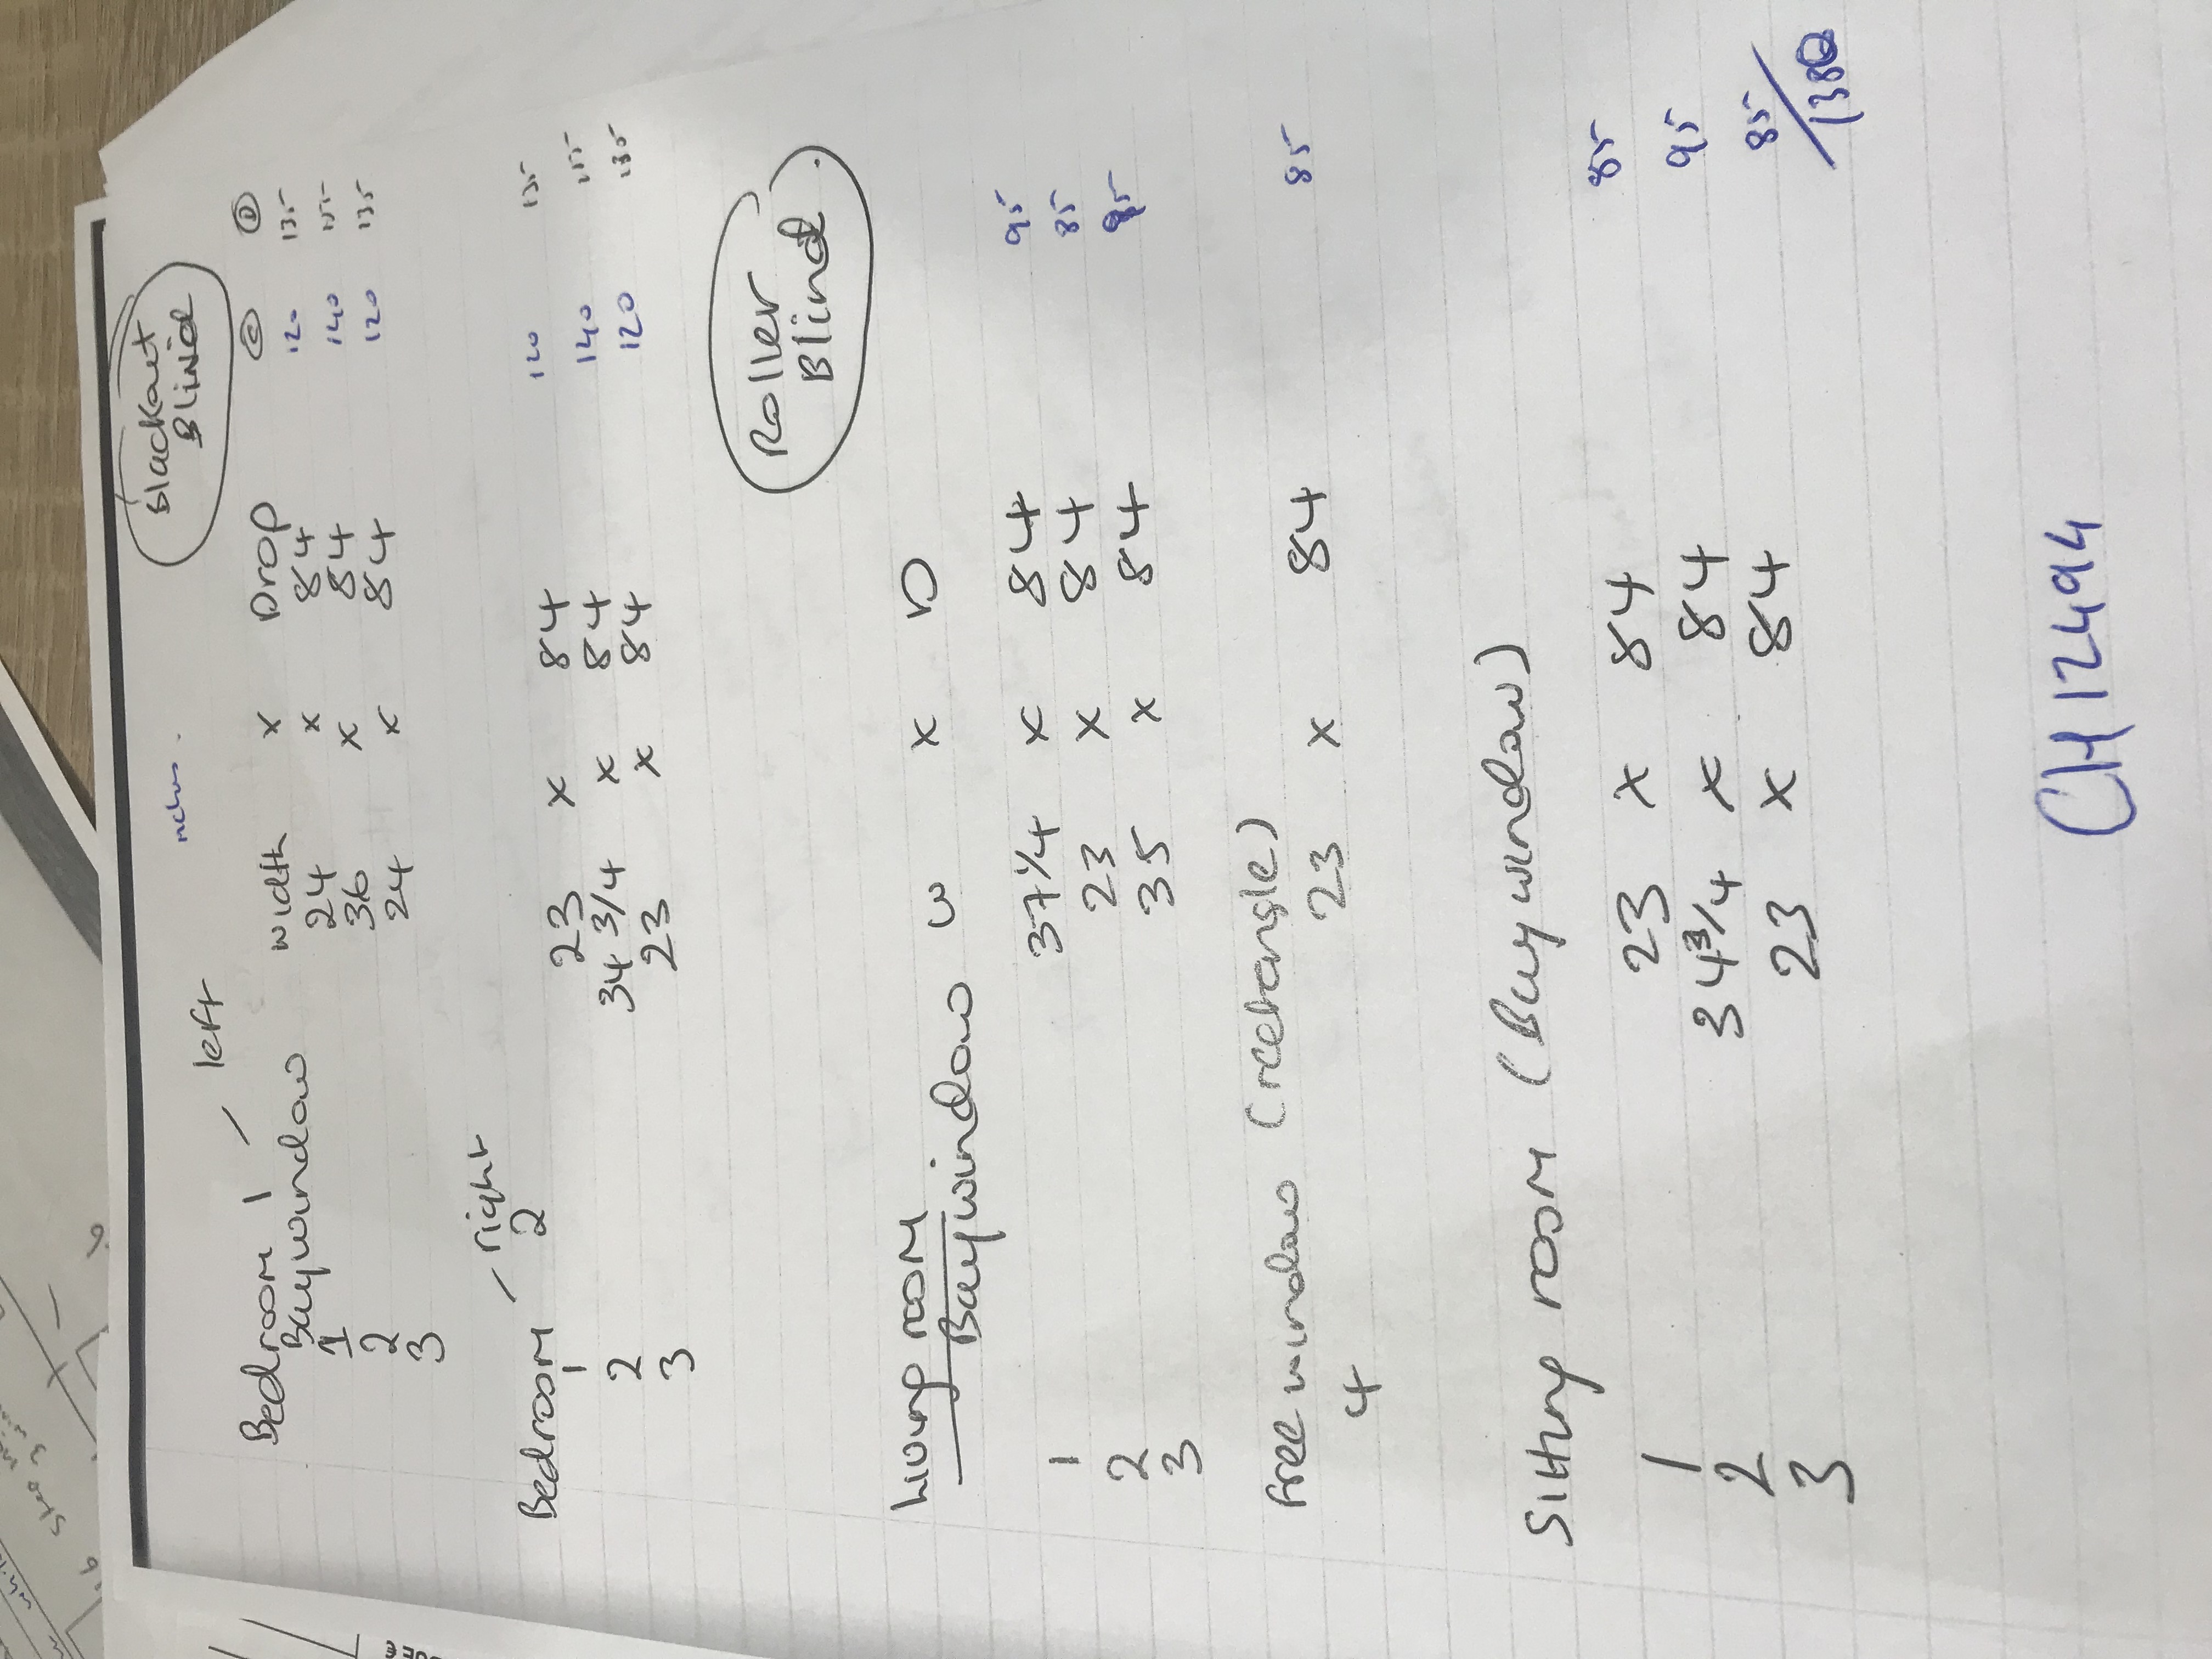 inches.
Blackout
Blind
Bedroom 1 / left
Baywindow width x Drop Ⓒ Ⓓ
1 24 x 84 120 135
2 36 x 84 140 155
3 24 x 84 120 135
Bedroom / right
2
1 23 x 84 120 135
2 34 3/4 x 84 140 155
3 23 x 84 120 135
Roller
Blind
Living room
Baywindow W x D
1 37 1/4 x 84 95
2 23 x 84 85
3 35 x 84 95
Free window (rectangle)
4 23 x 84 85
Sitting room (Baywindow)
1 23 x 84 85
2 34 3/4 x 84 95
3 23 x 84 85
CH12494